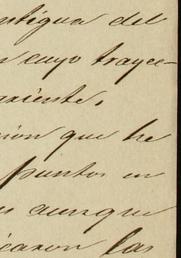 ntigua del
n cuyo trayec-
ariente.
ción que he
puntos en
aunque
icaron las